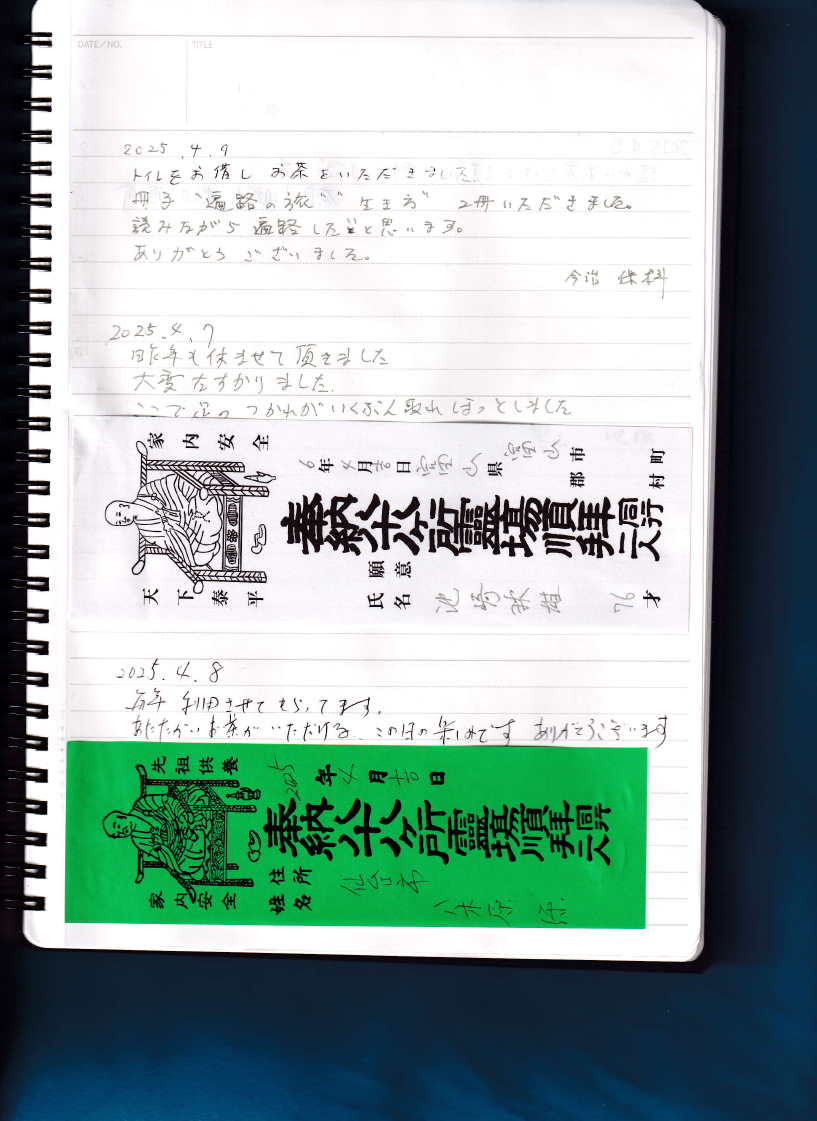 DATE/NO.
TITLE
2025.4.9
トイレをお借し お茶をいただきました。
冊子"遍路の旅" 生き方" 2冊いただきました。
読みながら遍路したいと思います。
ありがとうございました。
今治
2025.4.7
昨年も休ませて頂きました
大変たすかりました。
ここで つかれがいくぶん取れ ほっとしました
家内安全
天下泰平
奉納八十八ケ所霊場順拝同行二人
6年4月吉日 県 市郡 町村
願意
氏名 76才
2025.4.8
毎年 利用させてもらってます。
あたたかいお茶がいただける。この日の楽しみです ありがとうございます
先祖供養
家内安全
2025年4月吉日
奉納八十八ケ所霊場順拝同行二人
住所 仙台市
姓名